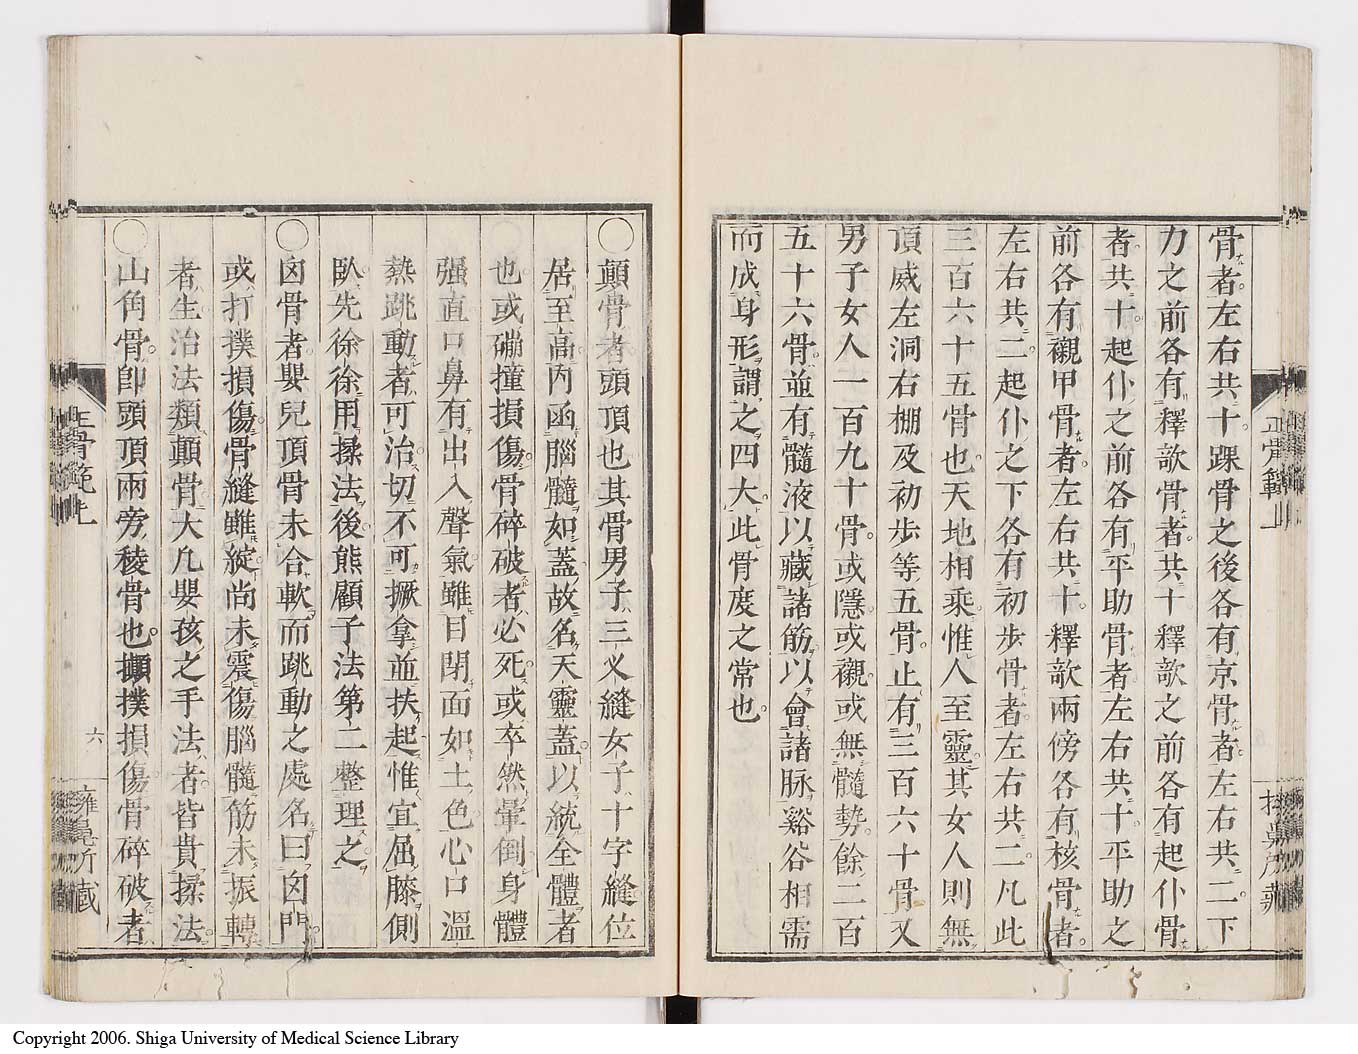 骨者左右共十踝骨之後各有京骨者左右共二下
力之前各有釋歆骨者共十釋歆之前各有起仆骨
者共十起仆之前各有平助骨者左右共十平助之
前各有襯甲骨者左右共十釋歆兩傍各有核骨者
左右共二起仆之下各有初步骨者左右共二凡此
三百六十五骨也天地相乘惟人至靈其女人則無
頂威左洞右棚及初步等五骨止有三百六十骨又
男子女人一百九十骨或隱或襯或無髓勢餘二百
五十六骨並有髓液以藏諸筋以會諸脉谿谷相需
而成身形謂之四大此骨度之常也
○顛骨者頭頂也其骨男子三叉縫女子十字縫位
居至高內函腦髓如蓋故名天靈蓋以統全體者
也或磞撞損傷骨碎破者必死或卒然暈倒身體
强直口鼻有出入聲氣雖目閉面如土色心口溫
熱跳動者可治切不可撅拿並扶起惟宜屈膝側
臥先徐徐用揉法後熊顧子法第二整理之
○囟骨者嬰兒頂骨未合軟而跳動之處名曰囟門
或打撲損傷骨縫雖綻尚未震傷腦髓筋未振轉
者生治法類顛骨大凡嬰孩之手法者皆貴揉法
○山角骨卽頭頂兩旁稜骨也擷撲損傷骨碎破者
六
Copyright 2006. Shiga University of Medical Science Library